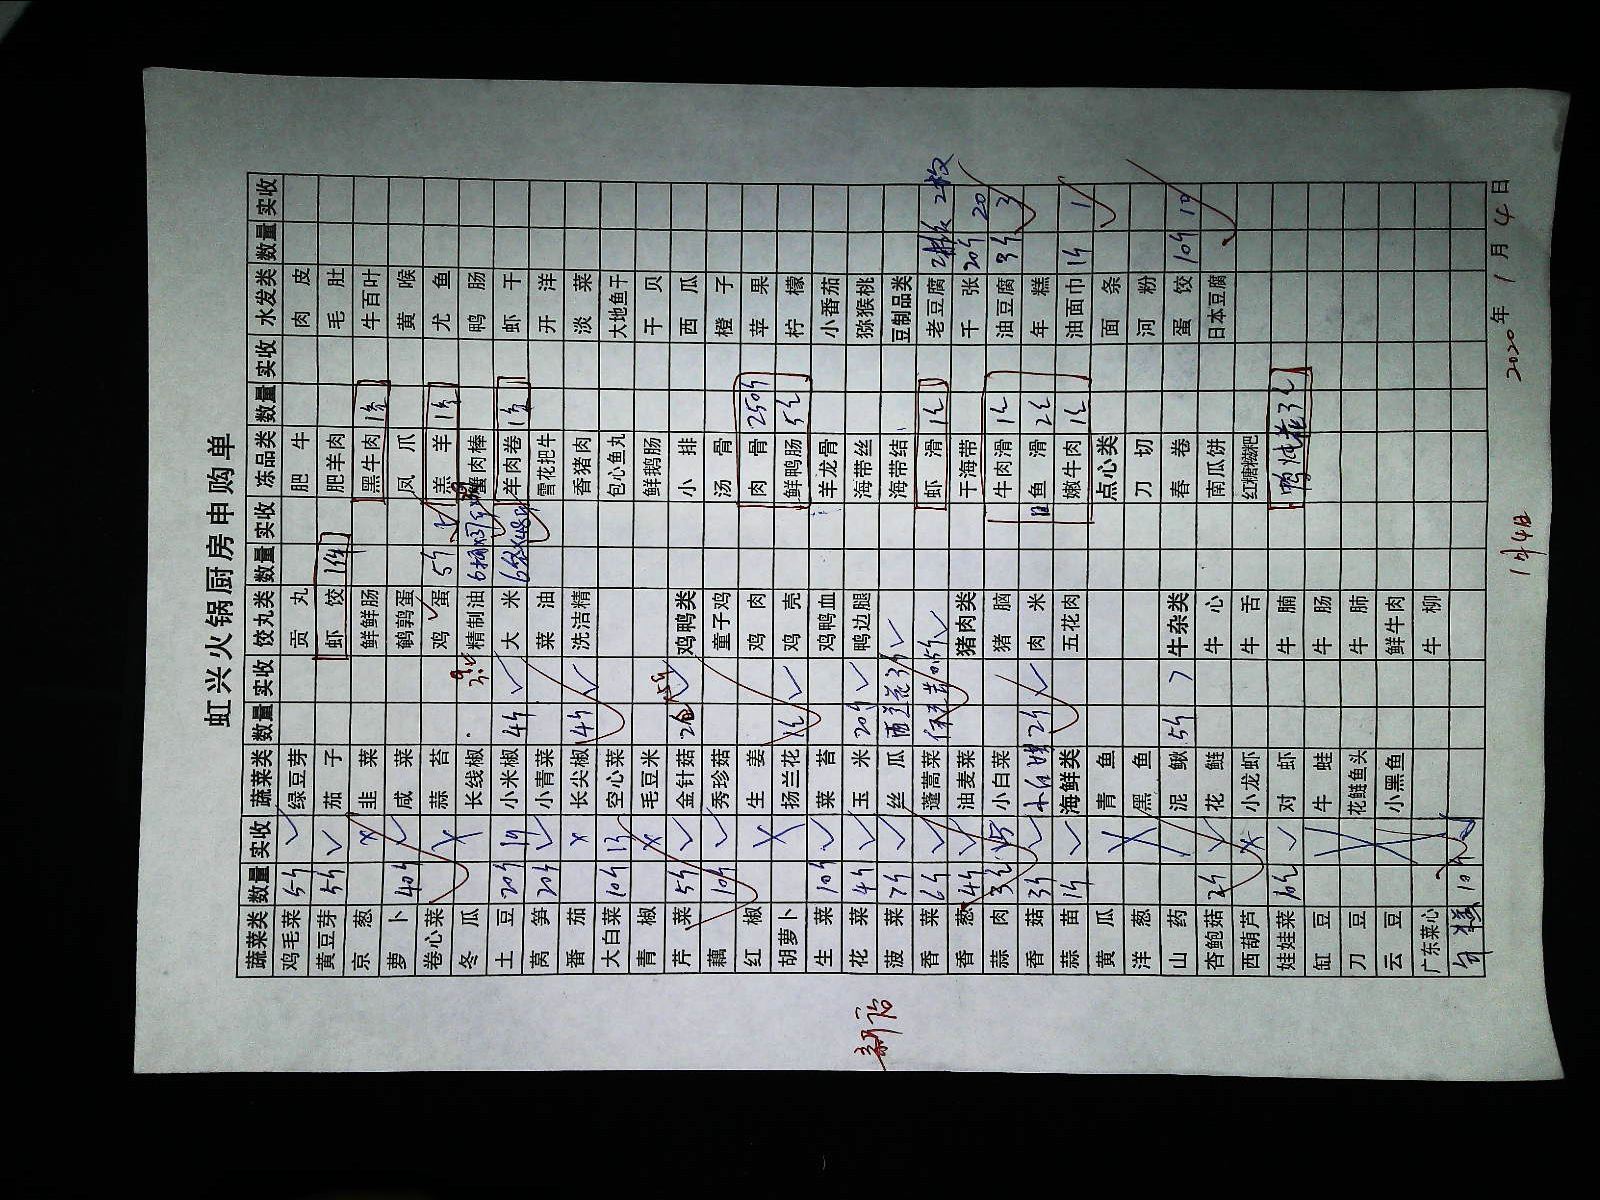 虹兴火锅厨房申购单
蔬菜类 数量 实收 蔬菜类 数量 实收 饺丸类 数量 实收 冻品类 数量 实收 水发类 数量 实收
鸡毛菜 5斤 ✓ 绿豆芽 贡丸 肥牛 肉皮
黄豆芽 5斤 ✓ 茄子 虾饺 1件 肥羊肉 毛肚
京葱 × 韭菜 鲜鲜肠 黑牛肉 1件 牛百叶
萝卜 40斤 ✓ 咸菜 鹌鹑蛋 凤爪 黄喉
卷心菜 × 蒜苔 鸡蛋 5斤 羔羊 1件 尤鱼
冬瓜 × 长线椒 精制油 6桶 蟹肉棒 鸭肠
土豆 20斤 19 小米椒 4斤 ✓ 大米 6袋 羊肉卷 1件 虾干
莴笋 20斤 ✓ 小青菜 菜油 雪花把牛 开洋
番茄 × 长尖椒 4斤 ✓ 洗洁精 香猪肉 淡菜
大白菜 10斤 13 空心菜 包心鱼丸 大地鱼干
青椒 × 毛豆米 鲜鹅肠 干贝
芹菜 5斤 ✓ 金针菇 2包 ✓ 鸡鸭类 小排 西瓜
藕 10斤 ✓ 秀珍菇 童子鸡 汤骨 橙子
红椒 × 生姜 鸡肉 肉骨 250斤 苹果
胡萝卜 × 扬兰花 ✓ 鸡壳 鲜鸭肠 柠檬
生菜 10斤 ✓ 菜苔 鸡鸭血 羊龙骨 小番茄
花菜 4斤 ✓ 玉米 20斤 ✓ 鸭边腿 海带丝 猕猴桃
菠菜 7斤 ✓ 丝瓜 西兰花3斤 ✓ 海带结 豆制品类
香菜 6斤 ✓ 蓬蒿菜 虾滑 老豆腐 2枚
香葱 4斤 ✓ 油麦菜 猪肉类 干海带 千张 20斤 20
蒜肉 小白菜 猪脑 牛肉滑 油豆腐 3斤 3
香菇 3斤 ✓ 2斤 ✓ 肉米 鱼滑 年糕
蒜苗 1斤 ✓ 海鲜类 五花肉 嫩牛肉 油面巾 1斤 1
黄瓜 青鱼 点心类 面条
洋葱 黑鱼 刀切 河粉
山药 泥鳅 5斤 7 牛杂类 春卷 蛋饺 10斤 10
杏鲍菇 2斤 ✓ 花鲢 牛心 南瓜饼 日本豆腐
西葫芦 × 小龙虾 牛舌 红糖糍粑
娃娃菜 ✓ 对虾 牛腩
缸豆 牛蛙 牛肠
刀豆 花鲢鱼头 牛肺
云豆 小黑鱼 鲜牛肉
广东菜心 牛柳
年糕 10斤
新店
1月4日
2020年1月4日